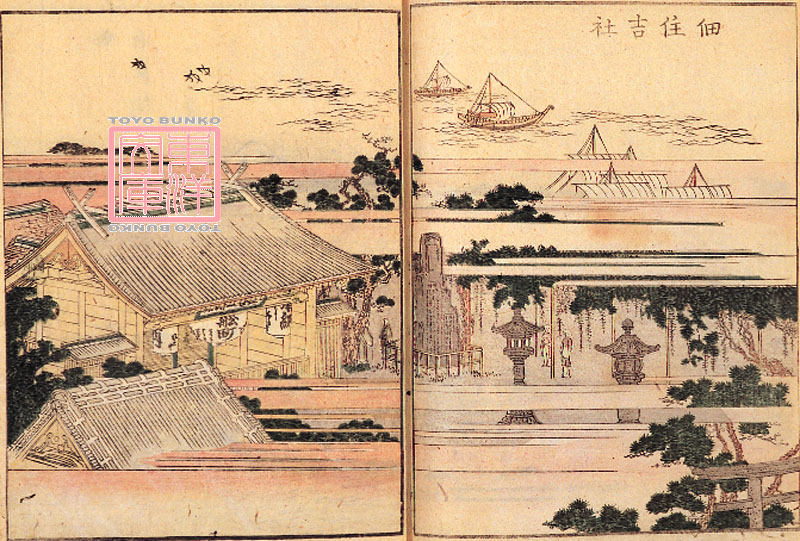 佃住吉社
TOYO BUNKO
東洋
文庫
TOYO BUNKO